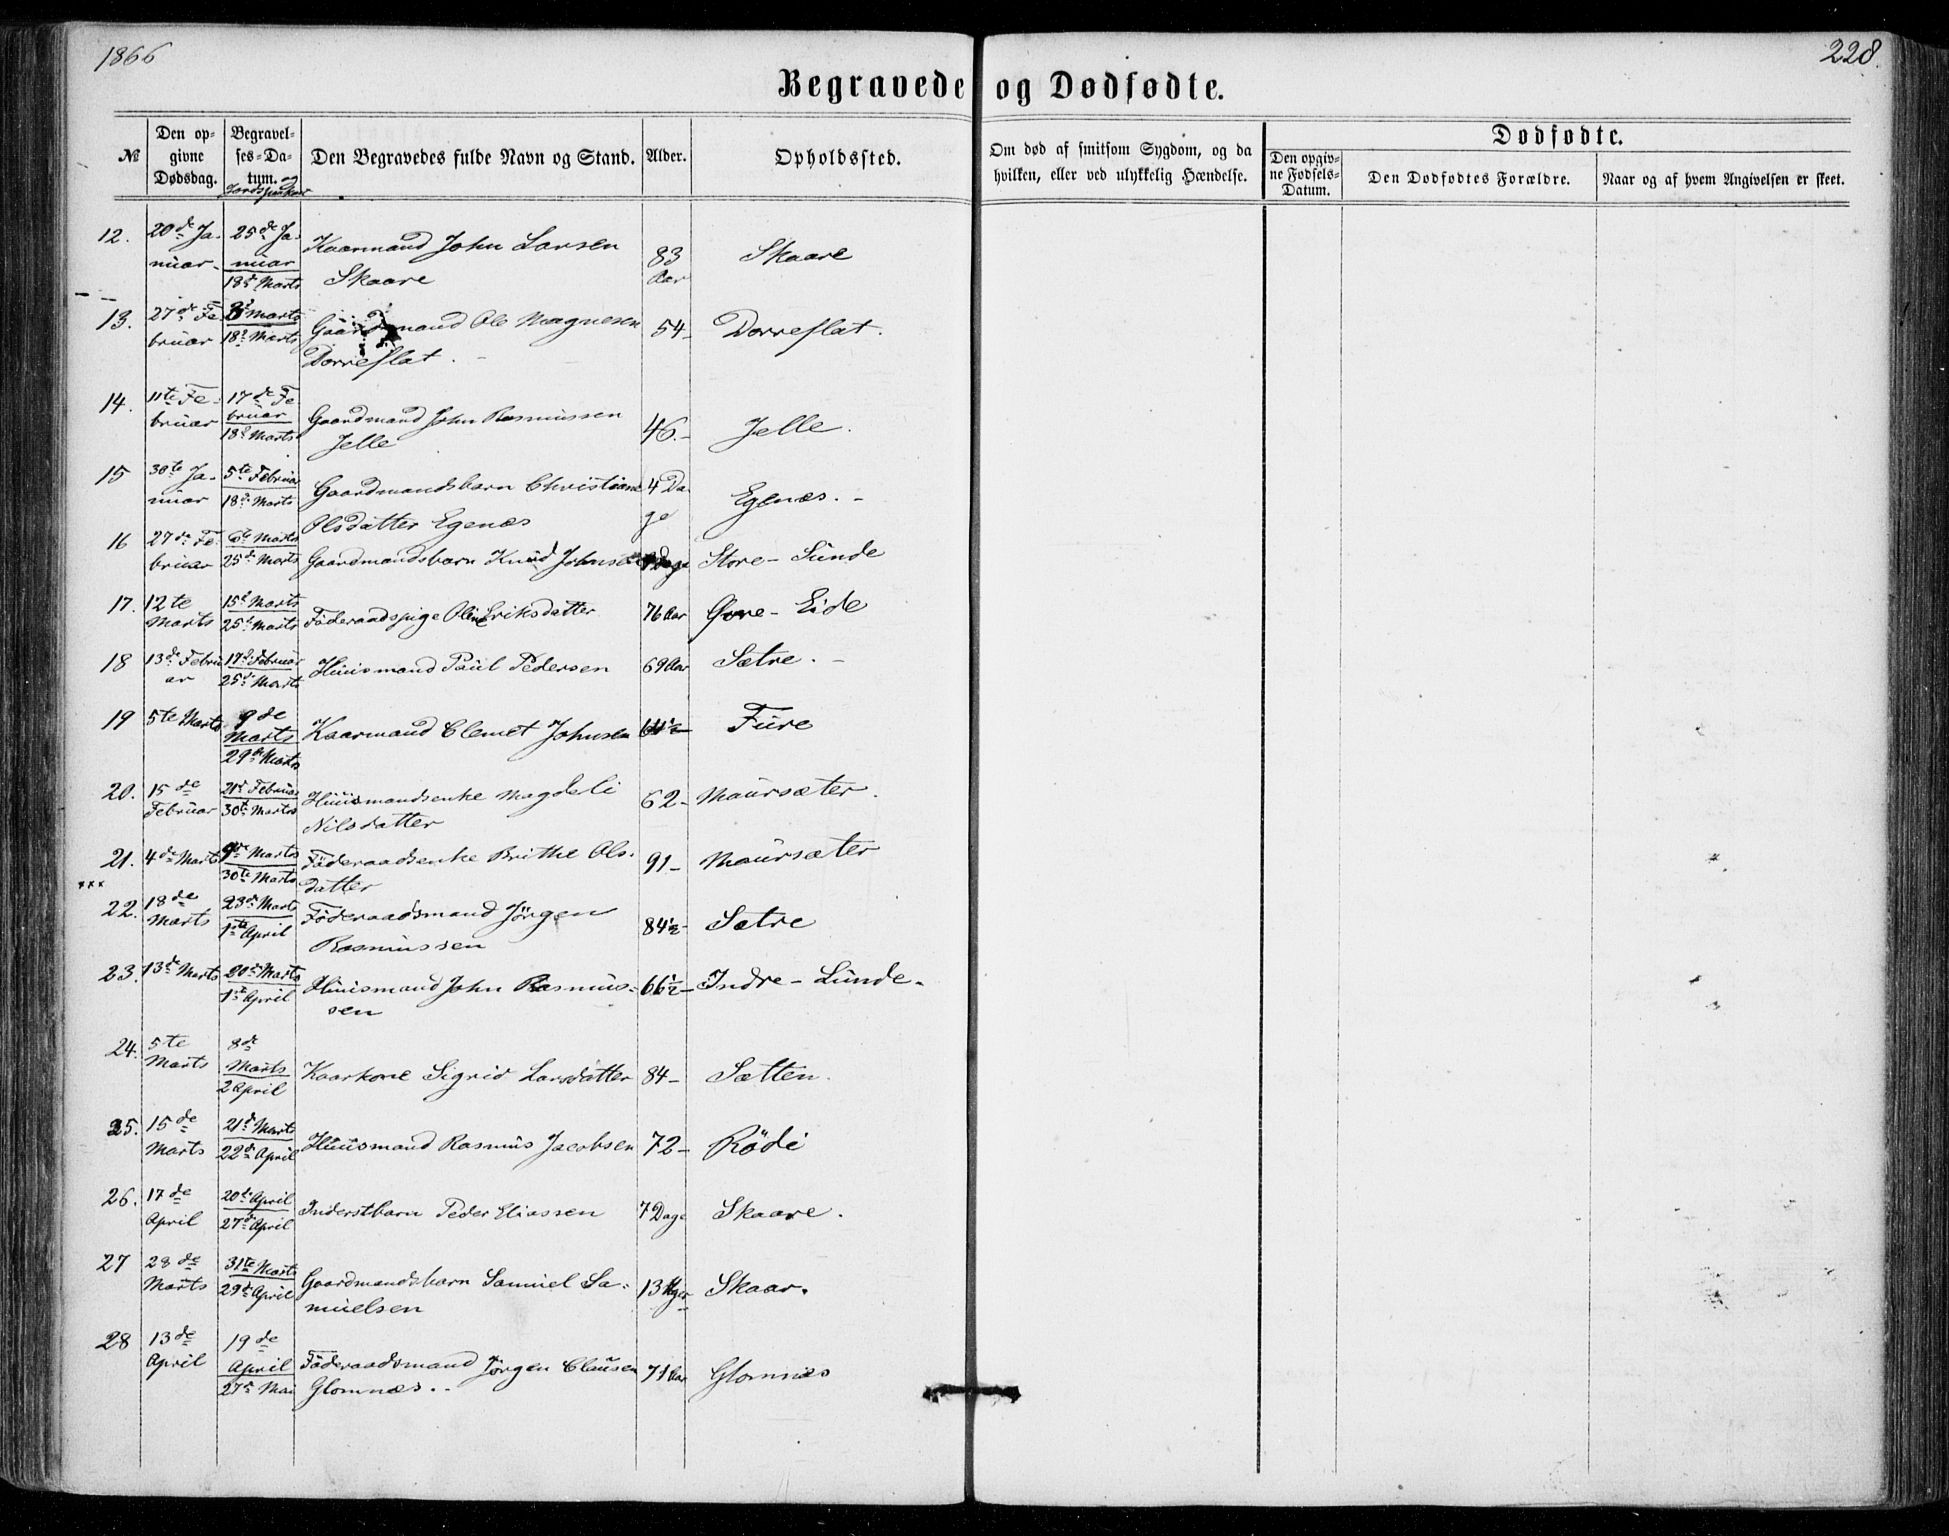 1866
228.
Begravede og Dødfødte.
№
Den opgivne Dødsdag.
Begravelses-Datum. og Jordspaakast
Den Begravedes fulde Navn og Stand.
Alder.
Opholdssted.
Om død af smitsom Sygdom, og da hvilken, eller ved ulykkelig Hændelse.
Dødfødte.
Den opgivne Fødsels-Datum.
Den Dødfødtes Forældre.
Naar og af hvem Angivelsen er skeet.
12. 20de Januar- 25de Januar 18de Marts Kaarmand John Larsen Skaare 83 Aar Skaare
13. 27de Februar 18d Marts Gaardmand Ole Magnesen Dorreflat. 54- Dorreflat.
14. 11te Februar 17de Februar 18d Marts Gaardmand John Rasmussen Jelle 46.- Jelle.
15 30te Januar 5te Februar 18d Marts Gaardmandsbarn Christiane Olsdatter Egenæs 4 Dage Egenæs.-
16 27de Februar 6te Marts 25d Marts Gaardmandsbarn Knud Johnsen Dage Store-Sunde
17. 12te Marts 15d Marts 25d Marts Föderaadspige Oline Eriksdatter 76 Aar Øvre-Eide
18 13de Februar 17d Februar 25d Marts Huusmand Paul Pedersen 69 Aar Sætre.-
19 5te Marts 9de Marts 29de Marts Kaarmand Clemet Johnsen Fure
20. 15de Februar 21d Februar 30te Marts Huusmandsenke Magdeli Nilsdatter 62- Maursæter.
21. 4de Marts 9de Marts 30te Marts Föderaadsenke Brithe Olsdatter 91- Maursæter
xxx
22. 18de Marts 23de Marts 1ste April Föderaadsmand Jörgen Rasmussen 84½- Sætre
23. 13de Marts 20de Marts 1ste April Huusmand John Rasmussen 66½- Indre-Lunde-
24. 5te Marts 8de Marts 2 April Kaarkone Sigrid Larsdatter 84- Sætten.
25. 15de Marts 21d Marts 22de April Huusmand Rasmus Jacobsen 72- Rödi
26. 17de April 20de April 27de April Inderstbarn Peder Eliassen 7 Dage Skaare.
27 28de Marts 31te Marts 29de April Gaardmandsbarn Samuel Samuelsen 13 Uger Skaar.
28 13de April 19de April 27d Mai Föderaadsmand Jörgen Clausen Glomnæs.. 71 Aar Glomnæs